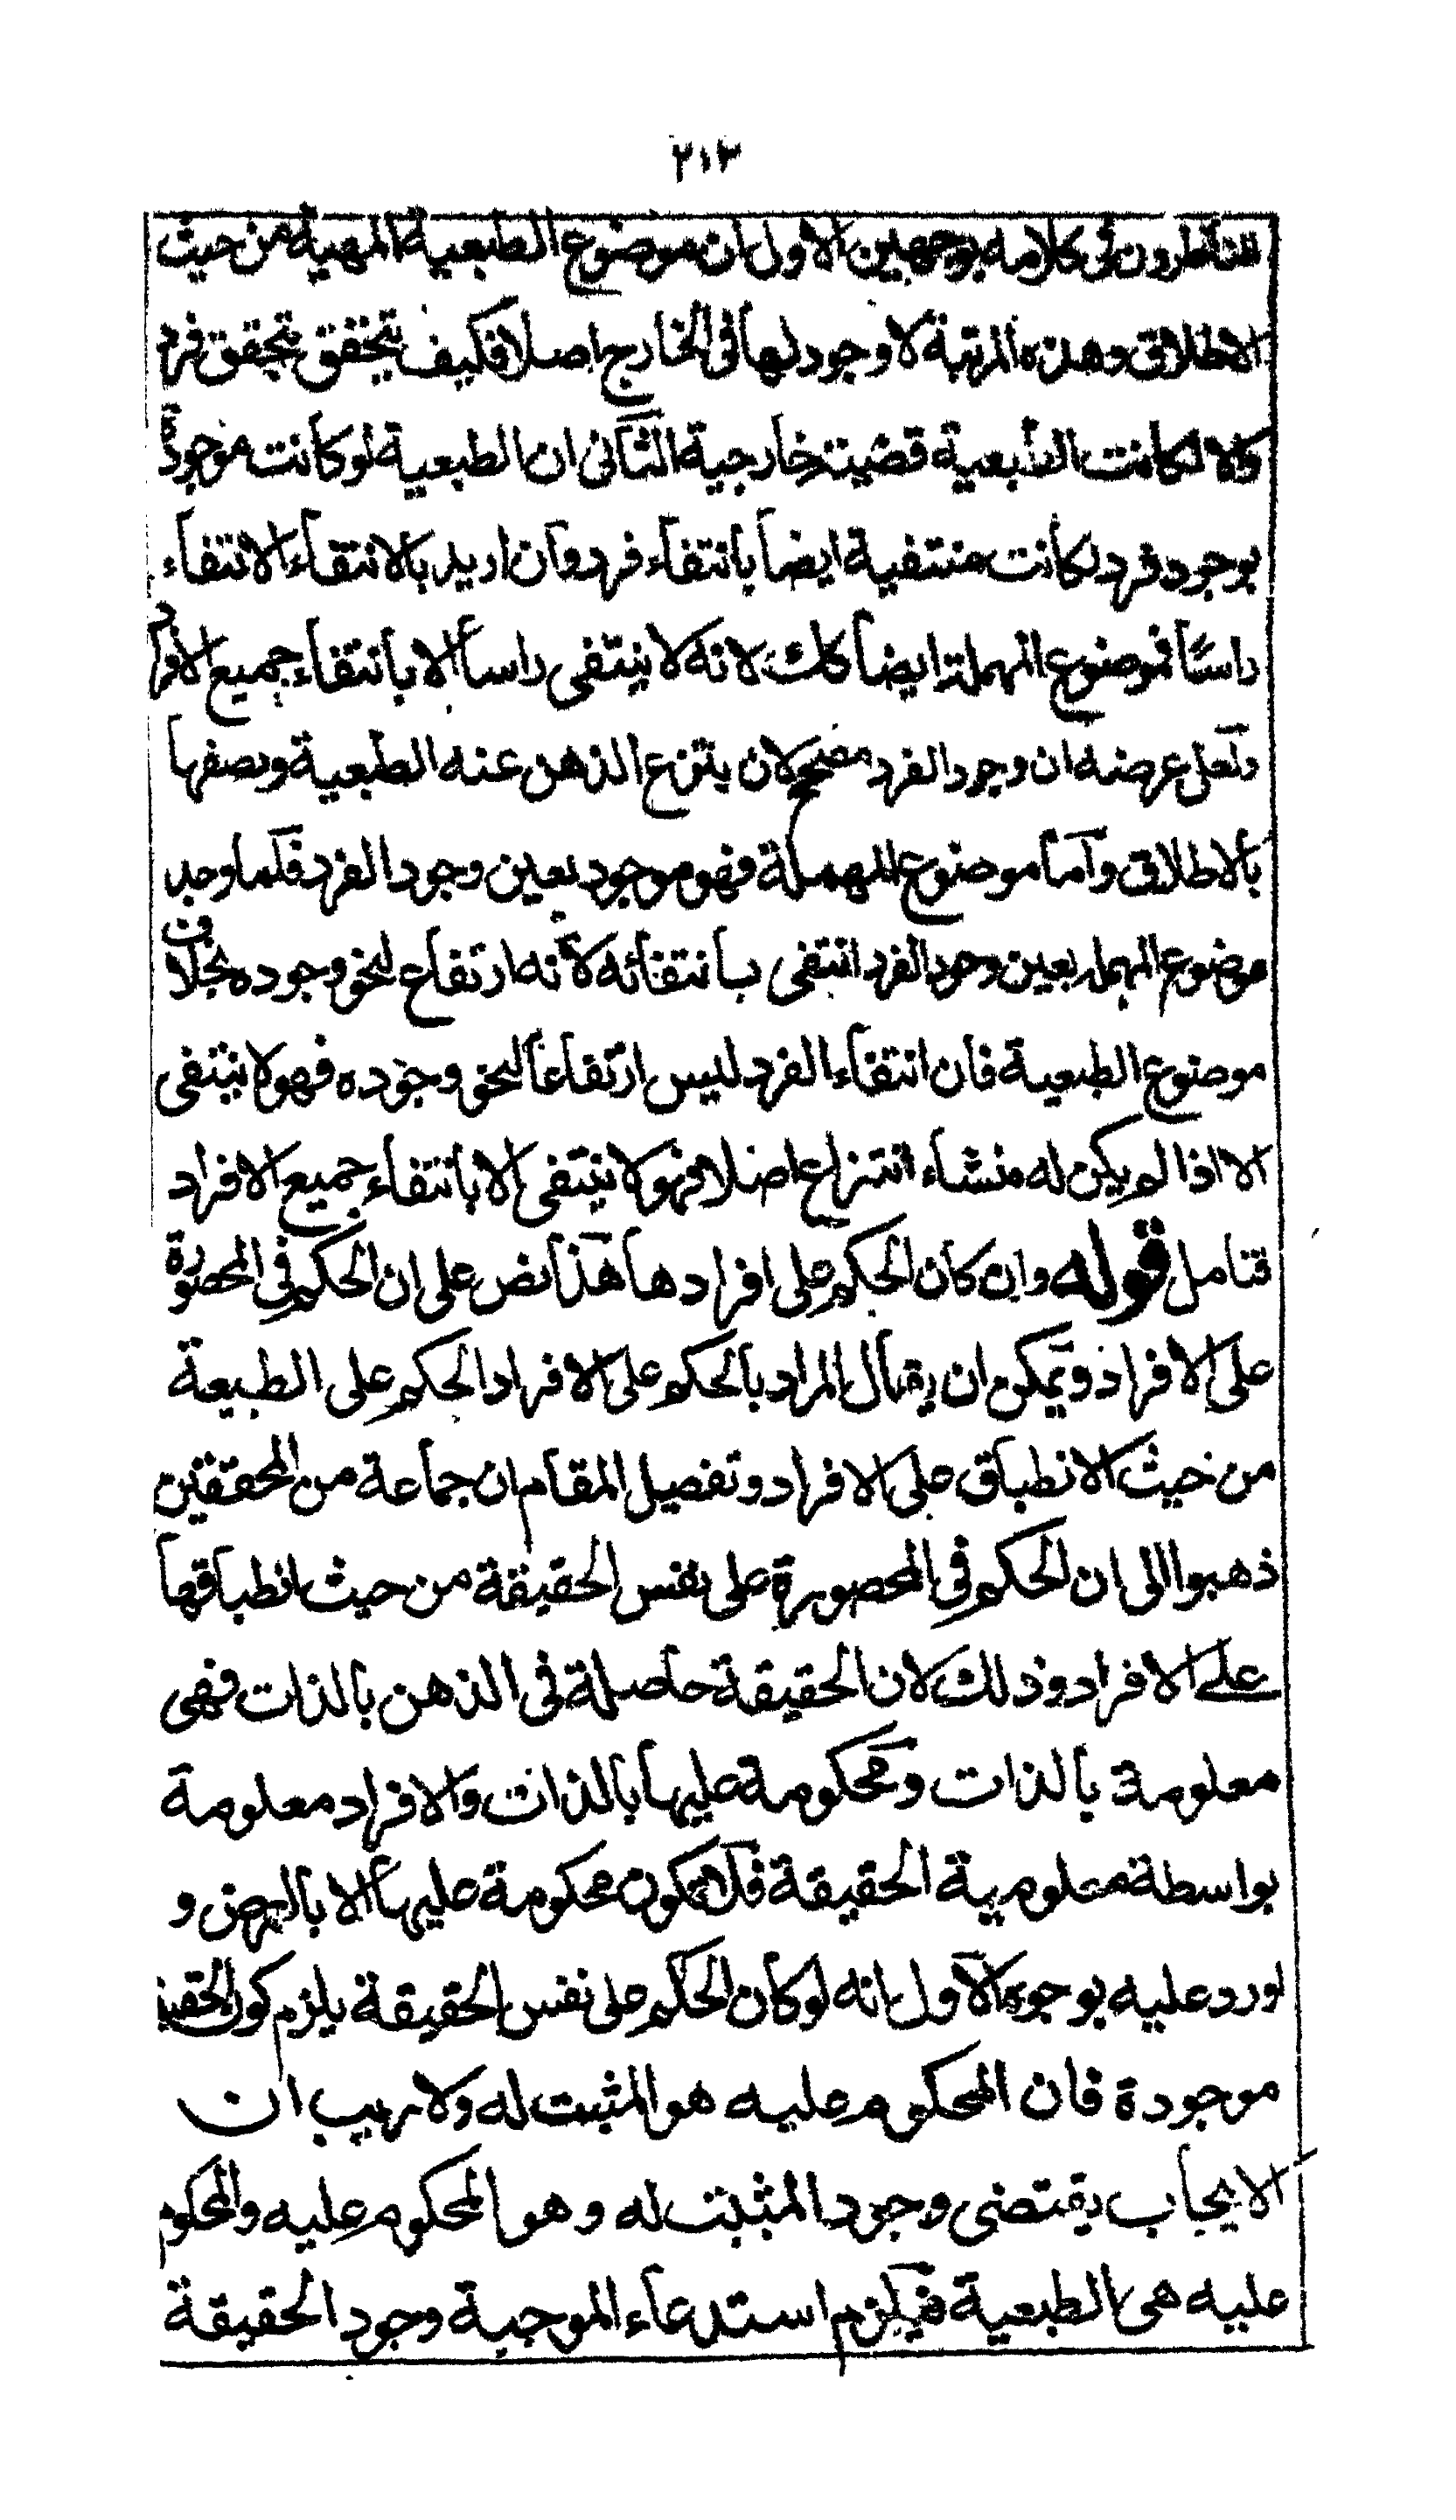 ٢١٣
الناظرون فى كلامه بوجهين الاول ان موضوع الطبعية المهية من حيث
الاطلاق وهذه المرتبة لا وجود لها فى الخارج اصلا فكيف يتحقق بتحقق فرد
والا لكانت الطبعية قضية خارجية الثانى ان الطبعية لو كانت موجودة
بوجود فرد لكانت منتفية ايضا بانتفاء فرد وان اريد بالانتفاء الانتفاء
راسًا فموضوع المهملة ايضا كك لانه لا ينتفى راسا الا بانتفاء جميع الافراد
ولعل غرضه ان وجود الفرد مصحح لان ينتزع الذهن عنه الطبعية ويصفها
بالاطلاق واما موضوع المهملة فهو موجود بعين وجود الفرد فكما وجد
موضوع المهملة بعين وجود الفرد انتفى بانتفائه لانه ارتفاع لنحو وجوده بخلاف
موضوع الطبعية فان انتفاء الفرد ليس ارتفاعا لنحو وجوده فهو لا ينتفى
الا اذا لم يكن له منشاء انتزاع اصلا فهو لا ينتفى الا بانتفاء جميع الافراد
فتامل قوله وان كان الحكم على افرادها هذا نص على ان الحكم فى المحصورة
على الافراد ويمكن ان يقال المراد بالحكم على الافراد الحكم على الطبيعة
من حيث الانطباق على الافراد وتفصيل المقام ان جماعة من المحققين
ذهبوا الى ان الحكم فى المحصورة على نفس الحقيقة من حيث انطباقها
على الافراد وذلك لان الحقيقة حاصلة فى الذهن بالذات فهى
معلومة بالذات ومحكومة عليها بالذات والافراد معلومة
بواسطة معلومية الحقيقة فلا تكون محكومة عليها الا بالعرض و
اورد عليه بوجوه الاول انه لو كان الحكم على نفس الحقيقة يلزم كون الحقيقة
موجودة فان المحكوم عليه هو المثبت له ولا ريب ان
الايجاب يقتضى وجود المثبت له وهو المحكوم عليه والمحكوم
عليه هى الطبعية فيلزم استدعاء الموجبة وجود الحقيقة